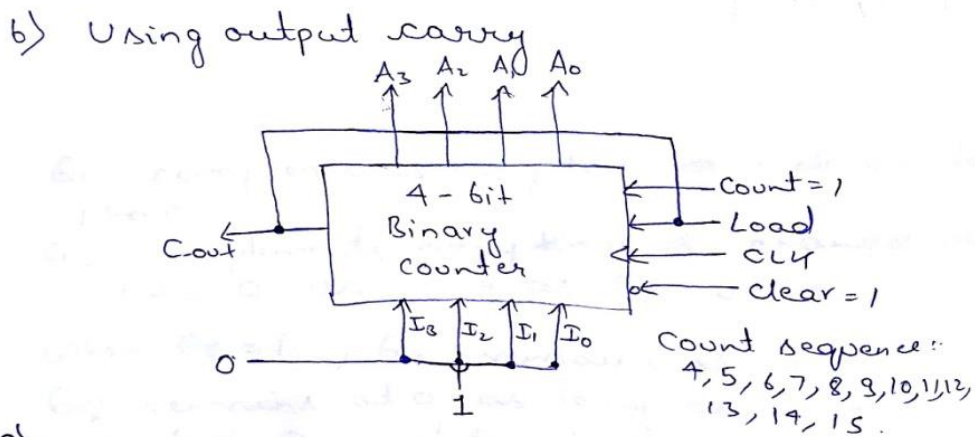 b) Using output carry
A3 A2 A1 A0
4-bit
Binary
counter
Count = 1
Load
CLK
Clear = 1
Cout
I3 I2 I1 I0
0
1
Count sequence:-
4, 5, 6, 7, 8, 9, 10, 11, 12,
13, 14, 15.